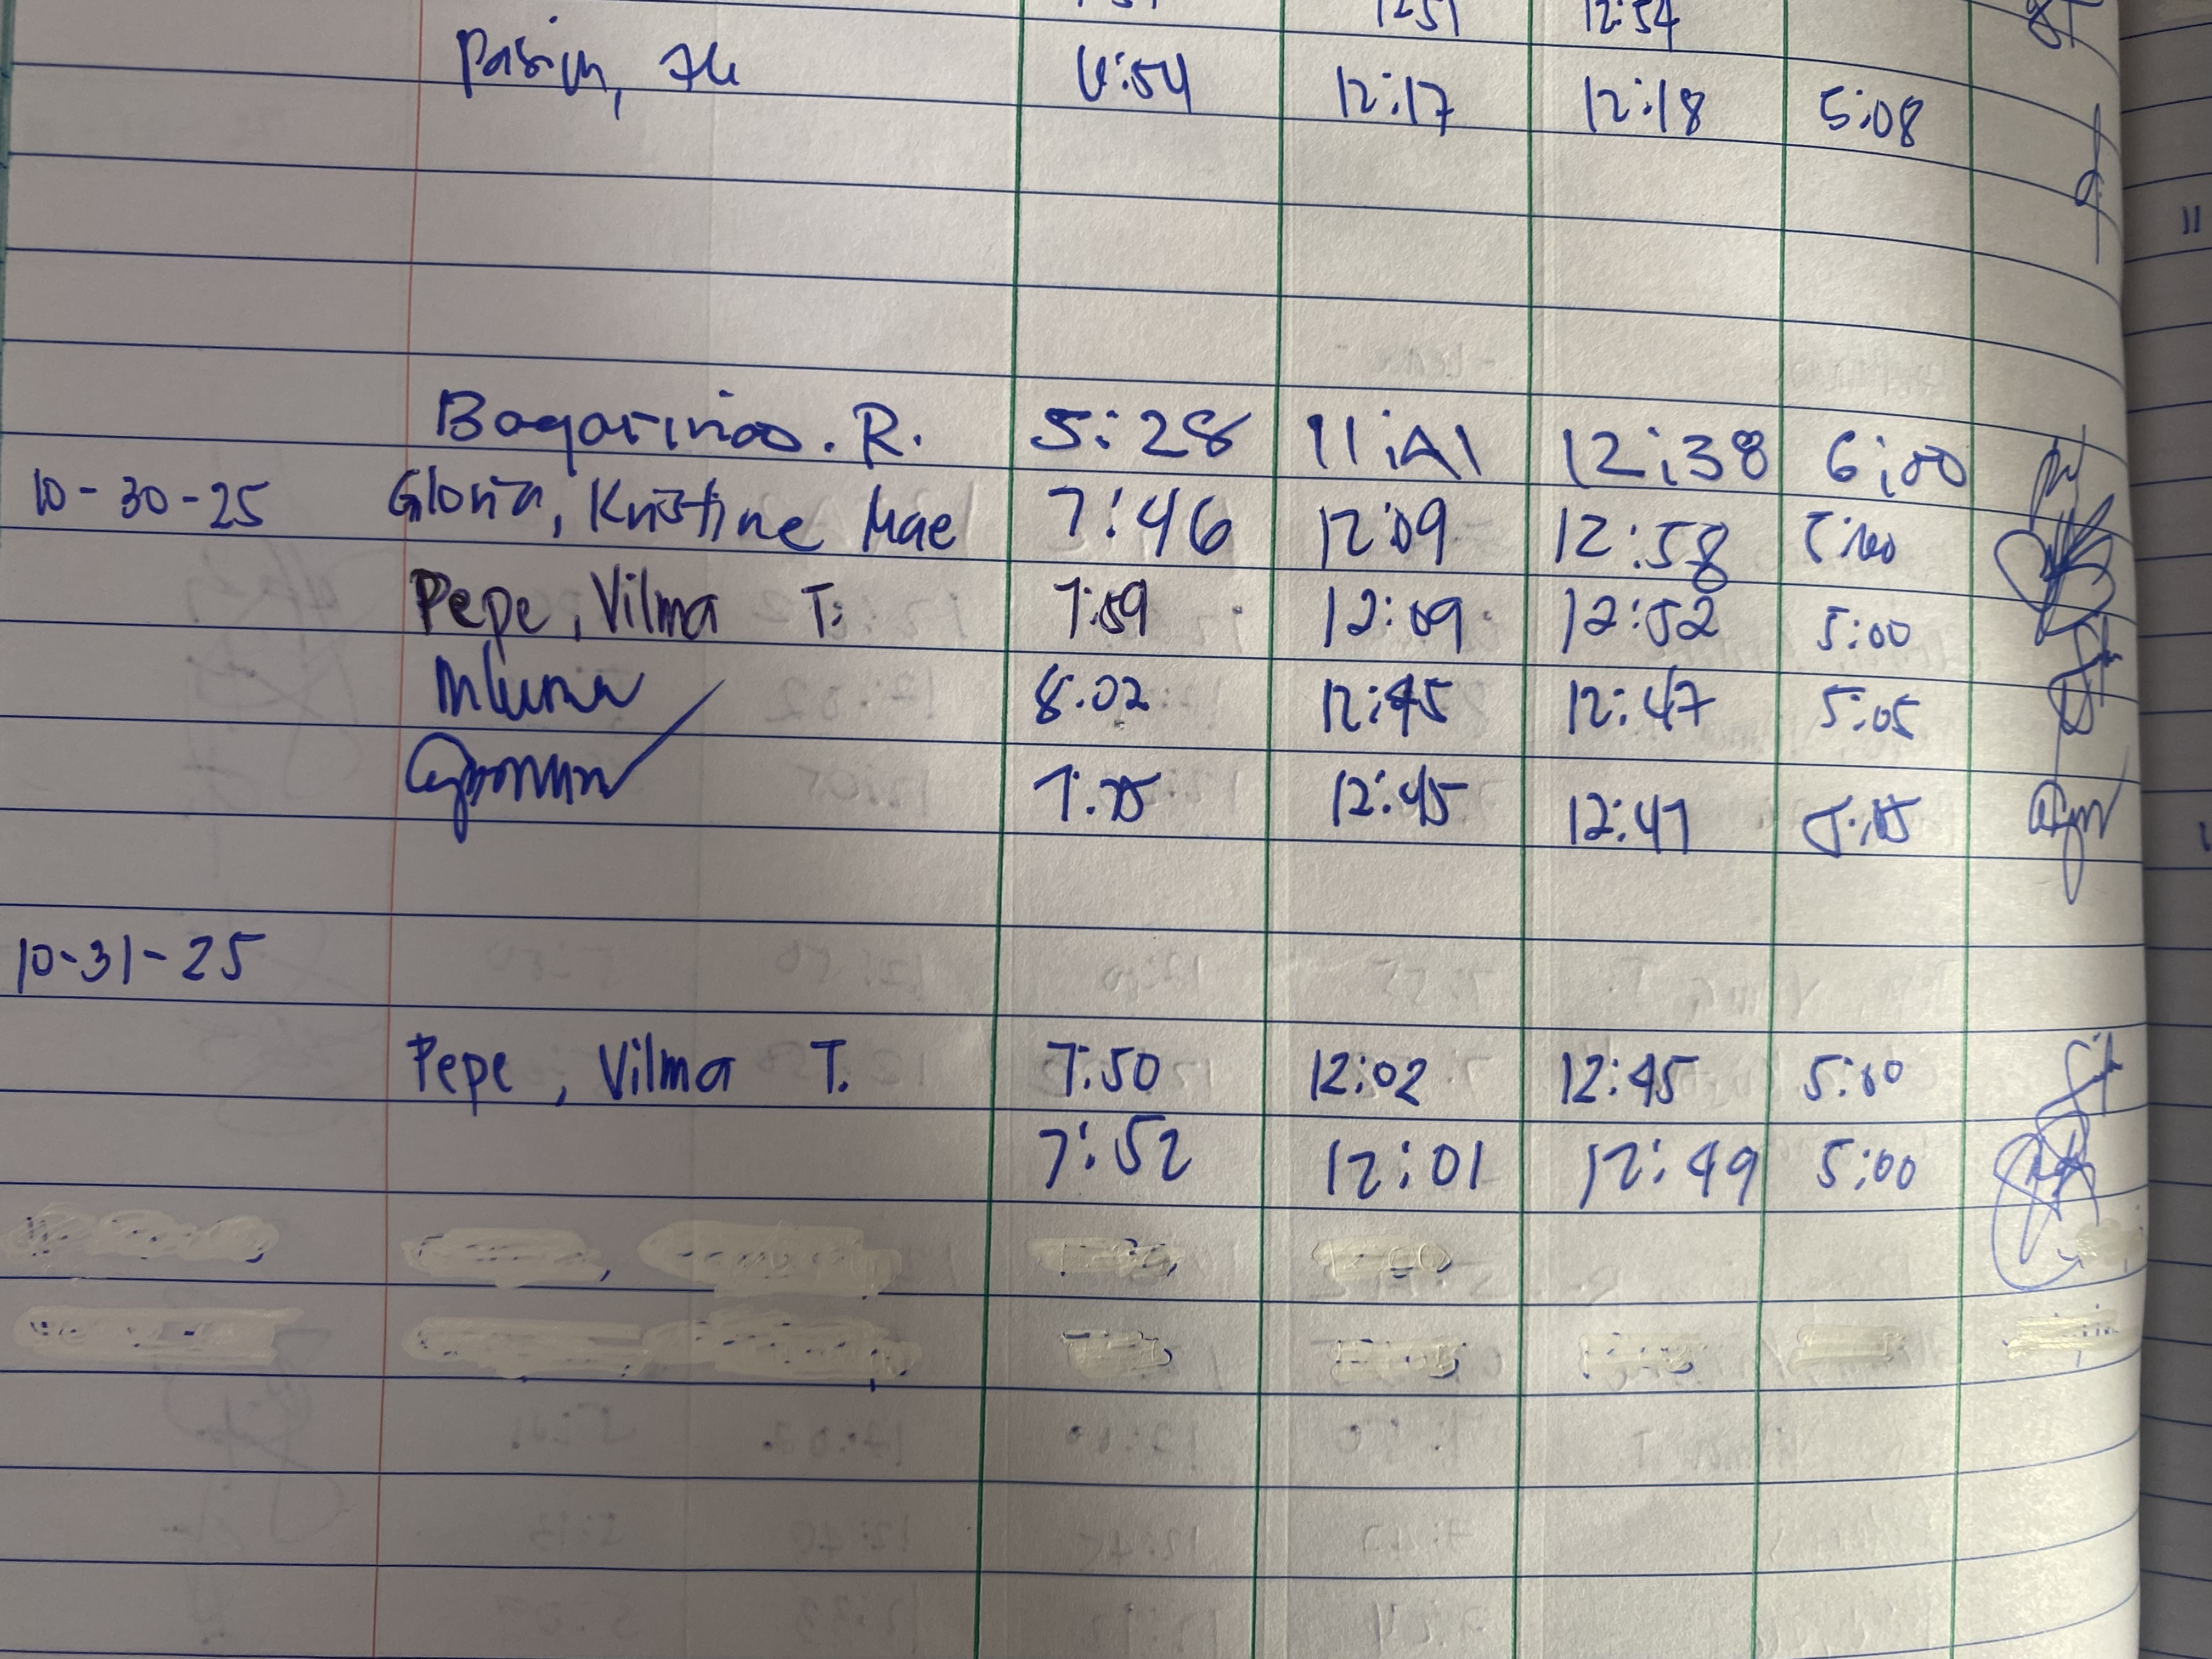 12:51 12:54
6:54 12:17 12:18 5:08
Bagarinao. R. 5:28 11:41 12:38 6:00
10-30-25 Gloria, Kristine Mae 7:46 12:09 12:58 5:00
Pepe, Vilma T. 7:59 12:09 12:52 5:00
8:02 12:45 12:47 5:05
12:45 12:47
10-31-25
Pepe, Vilma T. 7:50 12:02 12:45 5:00
7:52 12:01 12:49 5:00